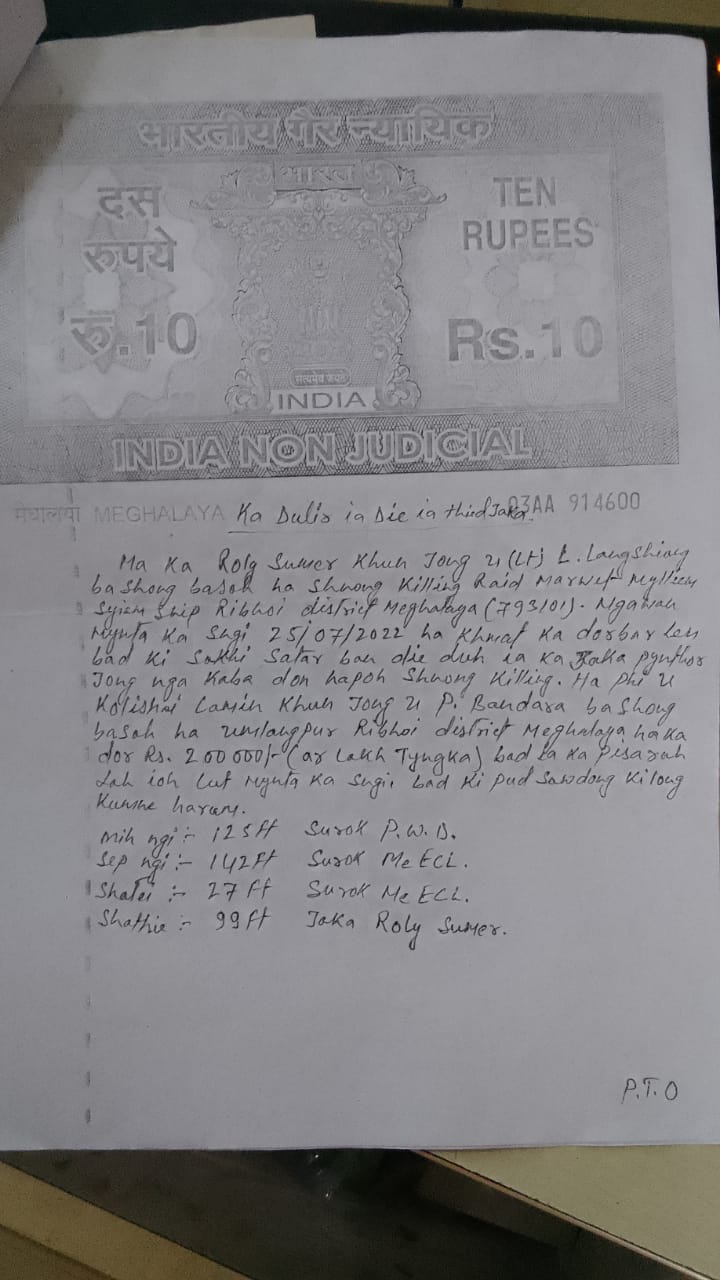 भारतीय गैर न्यायिक
भारत
दस
रुपये
रु.10
TEN
RUPEES
Rs.10
सत्यमेव जयते
INDIA
INDIA NON JUDICIAL
मेघालया MEGHALAYA Ka Dulir ia Die ia thied Jaka. 03AA 914600
Ma Ka Roly Sumer Khun Jong u (Lt) L. Langshiang
ba shong basah ha Shnong Killing Raid Marwet Mylliem
Syiem Ship Ribhoi district Meghalaya (793101). Ngawan
Mynta Ka Sngi 25/07/2022 ha Khmat Ka dorbar
bad Ki Sakhi Satar ban die duh ia Ka Jaka pynthor
Jong nga Kaba don hapoh Shnong Killing. Ha phi U
Kolishai Lamin Khun Jong u P. Bandara ba Shong
basah ha umlangpur Ribhoi district Meghalaya ha Ka
dor Rs. 200000/- (ar Lakh Tyngka) bad ia Ka Pisa
Lah ioh Lut Mynta Ka Sngi, bad Ki pud Sawdong Ki long
Kumne harum.
Mih ngi :- 125ft Surok P.W.D.
Sep ngi :- 142ft Surok Me ECL.
Shatei :- 27 ft Surok Me ECL.
Shathie :- 99ft Jaka Roly Sumer.
P.T.O